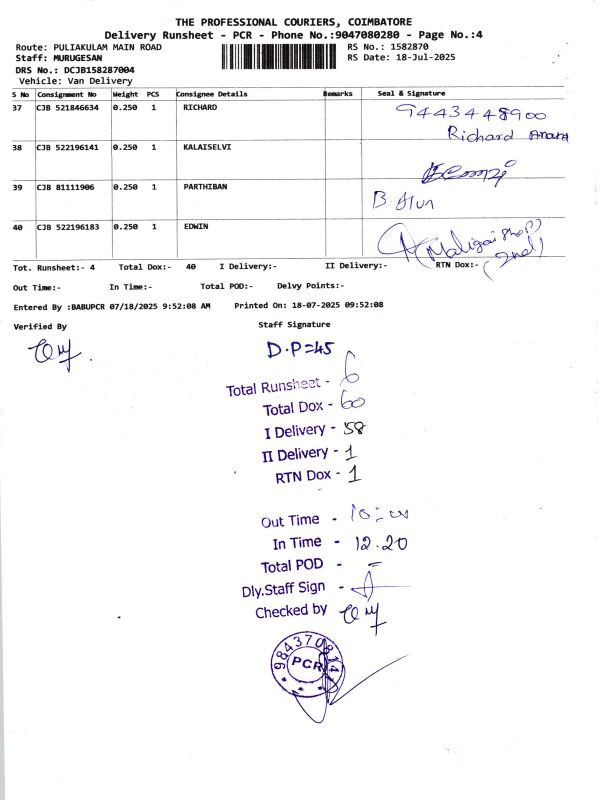 THE PROFESSIONAL COURIERS, COIMBATORE
Delivery Runsheet - PCR - Phone No.:9047080280 - Page No.:4
Route: PULIAKULAM MAIN ROAD
RS No.: 1582870
Staff: MURUGESAN
RS Date: 18-Jul-2025
DRS No.: DCJB158287004
Vehicle: Van Delivery
S No Consignment No Weight PCS Consignee Details Remarks Seal & Signature
37 CJB 521846634 0.250 1 RICHARD 9443448900
Richard
38 CJB 522196141 0.250 1 KALAISELVI
39 CJB 81111906 0.250 1 PARTHIBAN B Arun
40 CJB 522196183 0.250 1 EDWIN
Tot. Runsheet:- 4 Total Dox:- 40 I Delivery:- II Delivery:- RTN Dox:-
Out Time:- In Time:- Total POD:- Delvy Points:-
Entered By :BABUPCR 07/18/2025 9:52:08 AM Printed On: 18-07-2025 09:52:08
Verified By Staff Signature
D.P=45
Total Runsheet - 6
Total Dox - 60
I Delivery - 58
II Delivery - 1
RTN Dox - 1
Out Time -
In Time - 12.20
Total POD - -
Dly.Staff Sign -
Checked by
PCR